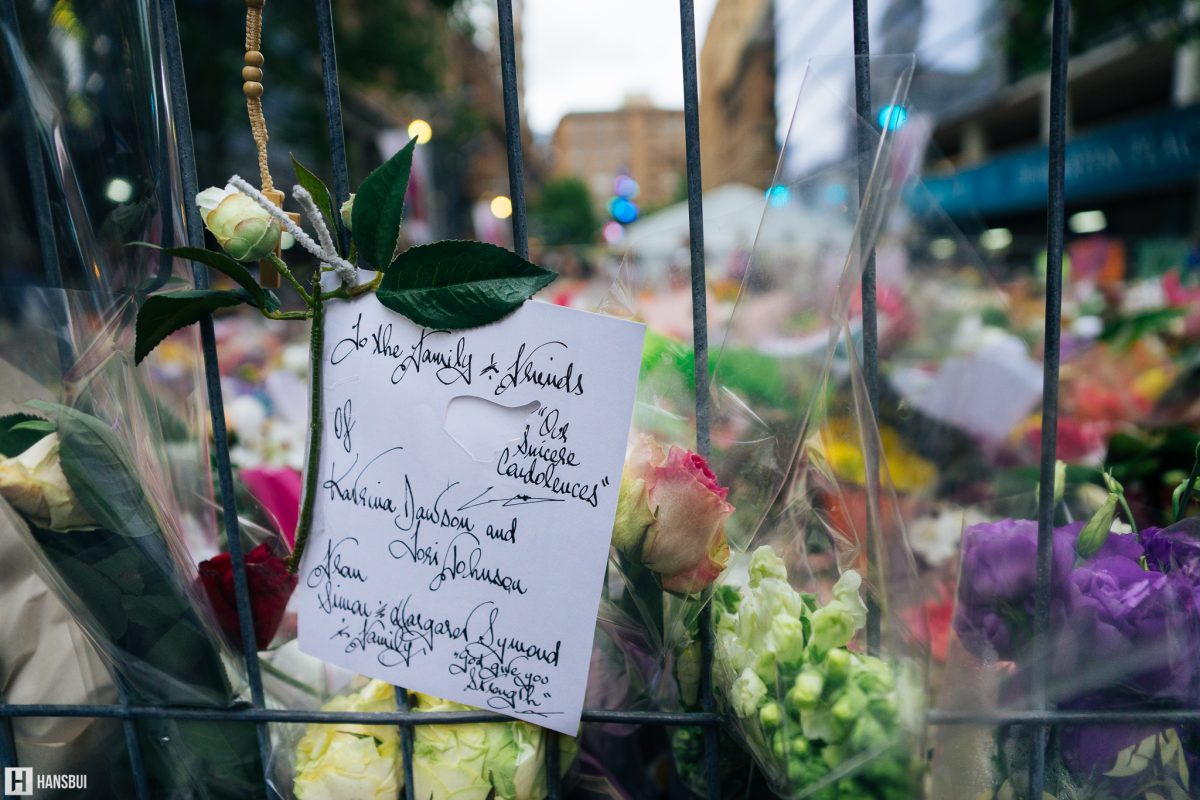 To the Family & Friends
Of
"Our
Sincere
Condolences"
Katrina Dawson and
Tori Johnson
From
Simon & Margaret Symond
& Family
"God give you
Strength"
H HANSBUI